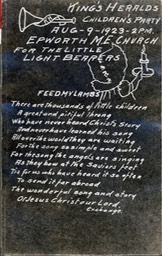 KING'S HERALDS
CHILDREN'S PARTY
AUG-9-1923-2PM.
EPWORTH M.E. CHURCH
FOR THE LITTLE
LIGHT BEARERS
FEED MY LAMBS
There are thousands of little children
A great and pitiful throng
Who have never heard Christ's Story
And never have learned his song
All over the world they are waiting
For the song so simple and sweet
For the song the angels are singing
As they bow at the Saviors feet
Tis for us who have heard it so often
To send it far abroad
The wonderful song and story
Of Jesus Christ our Lord.
Exchange.